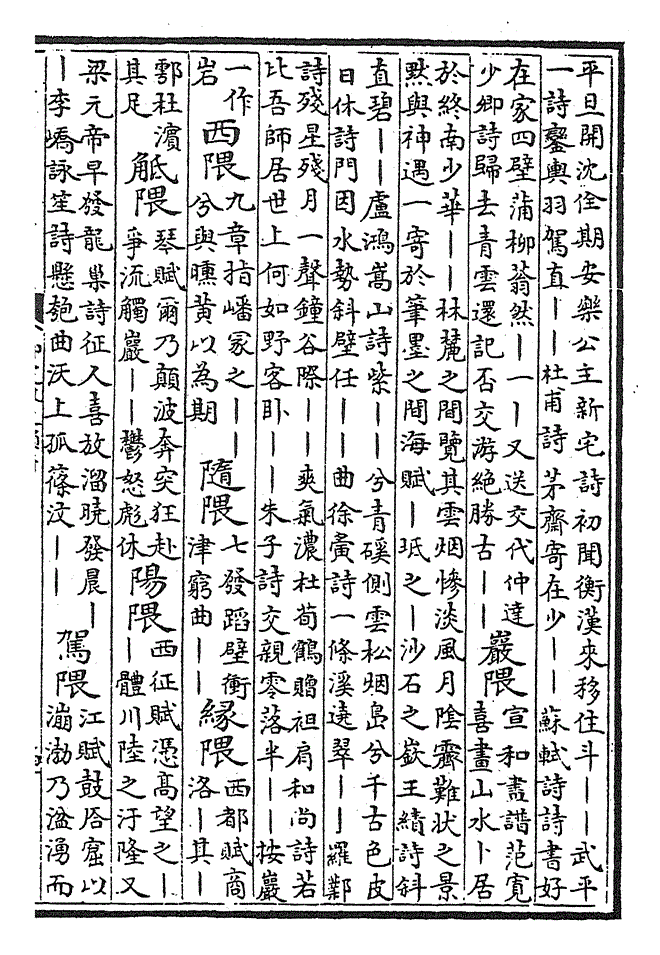 平旦開沈佺期安樂公主新宅詩初聞衡漢來移住斗丨丨武平
一詩鑾輿羽駕直丨丨杜甫詩茅齋寄在少丨丨蘇軾詩詩書好
在家四壁蒲柳蓊然丨一丨又送交代仲達
少卿詩歸去青雲還記否交游絕勝古丨丨
巖隈
宣和畫譜范寬
喜畫山水卜居
於終南少華丨丨林麓之間覽其雲烟慘淡風月陰霽難狀之景
黙與神遇一寄於筆墨之間海賦丨坻之丨沙石之嶔王績詩斜
直碧丨丨盧鴻嵩山詩紫丨丨兮青磎側雲松烟島兮千古色皮
日休詩門因水勢斜壁任丨丨丨曲徐夤詩一條溪遶翠丨丨羅鄴
詩殘星殘月一聲鐘谷際丨丨爽氣濃杜荀鶴贈袒肩和尚詩若
比吾師居世上何如野客卧丨丨朱子詩交親零落半丨丨按巖
一作
岩
西隈
九章指嶓冢之丨丨
兮與曛黄以為期
隨隈
七發蹈壁衝
津窮曲丨丨
緣隈
西都賦商
洛丨其丨
鄠杜濱
其足
觝隈
琴賦爾乃顛波奔突狂赴
爭流觸巖丨丨鬱怒彪休
陽隈
西征賦憑高望之丨
丨體川陸之汙隆又
梁元帝早發龍巢詩征人喜放溜曉發晨丨
丨李嶠詠笙詩懸匏曲沃上孤篠汶丨丨
駕隈
江賦鼓㕎窟以
漰渤乃湓湧而